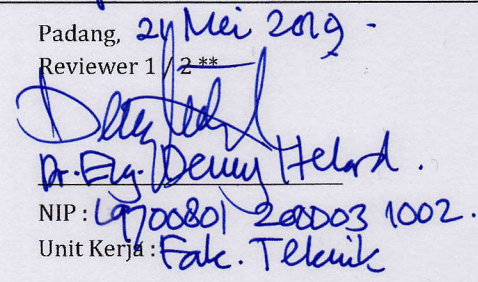 Padang, 24 Mei 2019.
Reviewer 1 / 2 **
Dr. Eng. Denny Helard.
NIP : 19700801 200003 1002.
Unit Kerja : Fak. Teknik